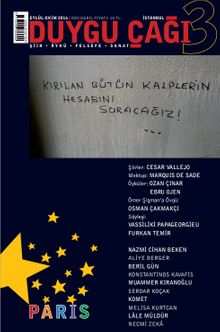 EYLÜL-EKİM 2014
İSTANBUL
DUYGU ÇAĞI
3
ŞİİR • ÖYKÜ • FELSEFE • SANAT
KIRILAN BÜTÜN KALPLERİN
HESABINI
SORACAĞIZ!
...
Şiirler: CESAR VALLEJO
Mektup: MARQUIS DE SADE
Öyküler: OZAN ÇINAR
EBRU OJEN
Ömer Şişman'a Övgü:
OSMAN ÇAKMAKÇI
Söyleşi:
VASSILIKI PAPAGEORGIEU
FURKAN TEMİR
NAZMİ CİHAN BEKEN
ALİYE BERGER
BERİL GÜN
KONSTANTİNOS KAVAFİS
MUAMMER KIRANOĞLU
SERDAR KOÇAK
KOMET
MELİSA KURTCAN
LÂLE MÜLDÜR
NECMİ ZEKÂ
PARİS